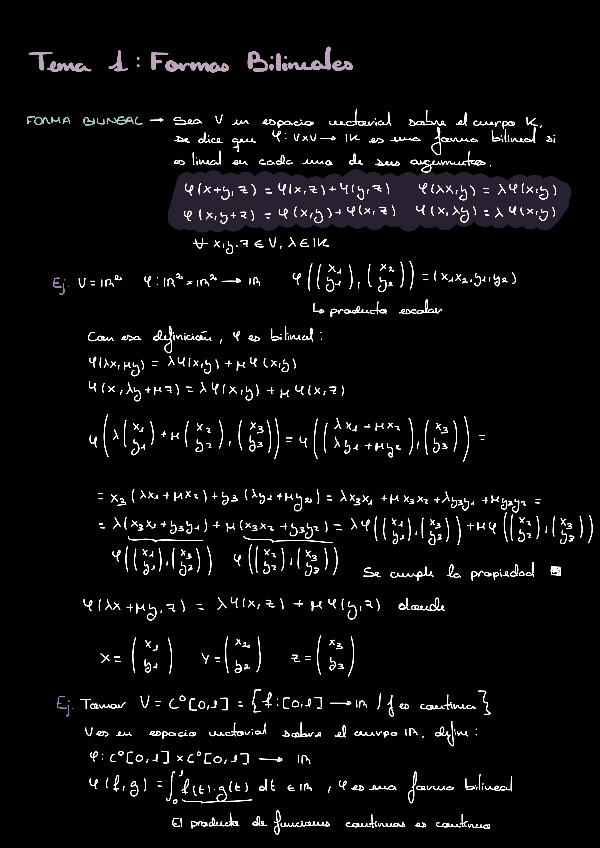 Tema 1: Formas Bilineales
FORMA BILINEAL → Sea V un espacio vectorial sobre el cuerpo K,
se dice que φ: V×V → K es una forma bilineal si
es lineal en cada una de sus argumentos.
φ(x+y, z) = φ(x, z) + φ(y, z)    φ(λx, y) = λφ(x, y)
φ(x, y+z) = φ(x, y) + φ(x, z)    φ(x, λy) = λφ(x, y)
∀ x, y, z ∈ V, λ ∈ K
Ej. V = ℝ²   φ: ℝ² × ℝ² → ℝ   φ((x₁ y₁), (x₂ y₂)) = (x₁x₂, y₁, y₂)
↳ producto escalar
Con esa definición, φ es bilineal:
φ(λx, μy) = λφ(x, y) + μφ(x, y)
φ(x, λy + μz) = λφ(x, y) + μφ(x, z)
φ(λ(x₁ y₁) + μ(x₂ y₂), (x₃ y₃)) = φ((λx₁ + μx₂ λy₁ + μy₂), (x₃ y₃)) =
= x₃(λx₁ + μx₂) + y₃(λy₁ + μy₂) = λx₃x₁ + μx₃x₂ + λy₃y₁ + μy₃y₂ =
= λ(x₃x₁ + y₃y₁) + μ(x₃x₂ + y₃y₂) = λφ((x₁ y₁), (x₃ y₃)) + μφ((x₂ y₂), (x₃ y₃))
φ((x₁ y₁), (x₃ y₃))   φ((x₂ y₂), (x₃ y₃))
Se cumple la propiedad
φ(λx + μy, z) = λφ(x, z) + μφ(y, z) donde
X = (x₁ y₁)   Y = (x₂ y₂)   Z = (x₃ y₃)
Ej. Tomar V = C⁰[0,1] = {f: [0,1] → ℝ / f es continua}
V es un espacio vectorial sobre el cuerpo ℝ, define:
φ: C⁰[0,1] × C⁰[0,1] → ℝ
φ(f, g) = ∫₀¹ f(t)·g(t) dt ∈ ℝ, φ es una forma bilineal
El producto de funciones continuas es continua